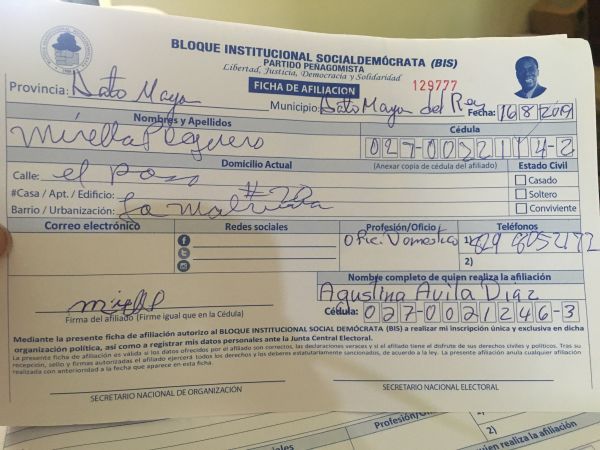 BLOQUE INSTITUCIONAL SOCIALDEMÓCRATA (BIS)
PARTIDO PEÑAGOMISTA
Libertad, Justicia, Democracia y Solidaridad
FICHA DE AFILIACION
129777
Provincia: Hato Mayor Municipio: Hato Mayor del Rey Fecha: 16 8 2019
Nombres y Apellidos Cédula
Mirella Peguero 027-0022114-2
Domicilio Actual (Anexar copia de cédula del afiliado) Estado Civil
Calle: el Poso Casado
#Casa / Apt. / Edificio: #20 Soltero
Barrio / Urbanización: La Conviviente
Correo electrónico Redes sociales Profesión/Oficio Teléfonos
Ofic. Domestico 1) 829 8052172
2)
Nombre completo de quien realiza la afiliación
Agustina Avila Diaz
Firma del afiliado (Firme igual que en la Cédula) Cédula: 027-0021246-3
Mediante la presente ficha de afiliación autorizo al BLOQUE INSTITUCIONAL SOCIAL DEMÓCRATA (BIS) a realizar mi inscripción única y exclusiva en dicha
organización política, así como a registrar mis datos personales ante la Junta Central Electoral.
La presente ficha de afiliación es valida si los datos ofrecidos por el afiliado son correctos, las declaraciones veraces y si el afiliado tiene el disfrute de sus derechos civiles y políticos. Tras su
recepción, sello y firmas autorizadas el afiliado ejercerá todos los derechos y los deberes estatutariamente sancionados, de acuerdo a la ley. La presente afiliación anula cualquier afiliación
realizada con anterioridad a la fecha que aparece en esta ficha.
SECRETARIO NACIONAL DE ORGANIZACIÓN SECRETARIO NACIONAL ELECTORAL
Profesión/
1)
2)
sociales
en realiza la afiliación